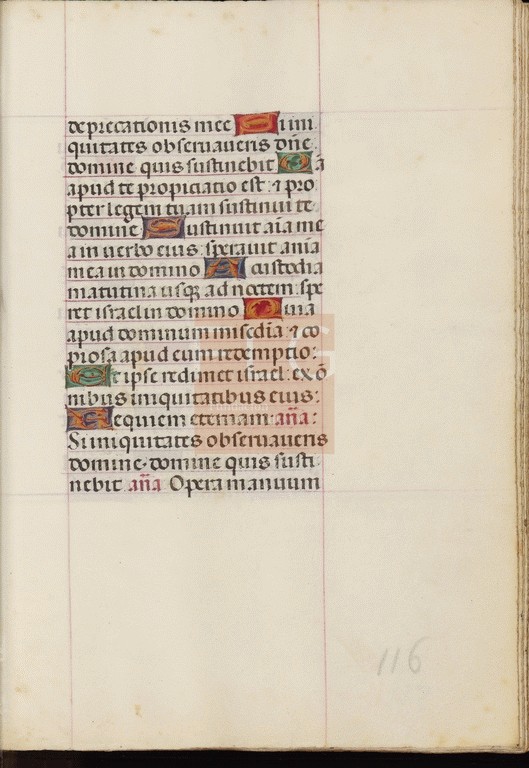 deprecationis mee Si ini
quitates observaveris dñe
domine quis sustinebit Q̃ a
apud te propiciatio est: ⁊ pro
pter legem tuam sustinui te
domine Sustinuit aĩa me
a in verbo eius: speravit anĩa
mea in domino A custodia
matutina usqꝫ ad noctem: spe
ret israel in domino Quia
apud dominum miscdĩa ⁊ co
piosa apud eum redemptio:
Et ipse redimet israel: ex õ
nibus iniquitatibus eius:
Requiem eternam añã:
Si iniquitates observaveris
domine domine quis susti
nebit añã Opera manuum
Fundación
116